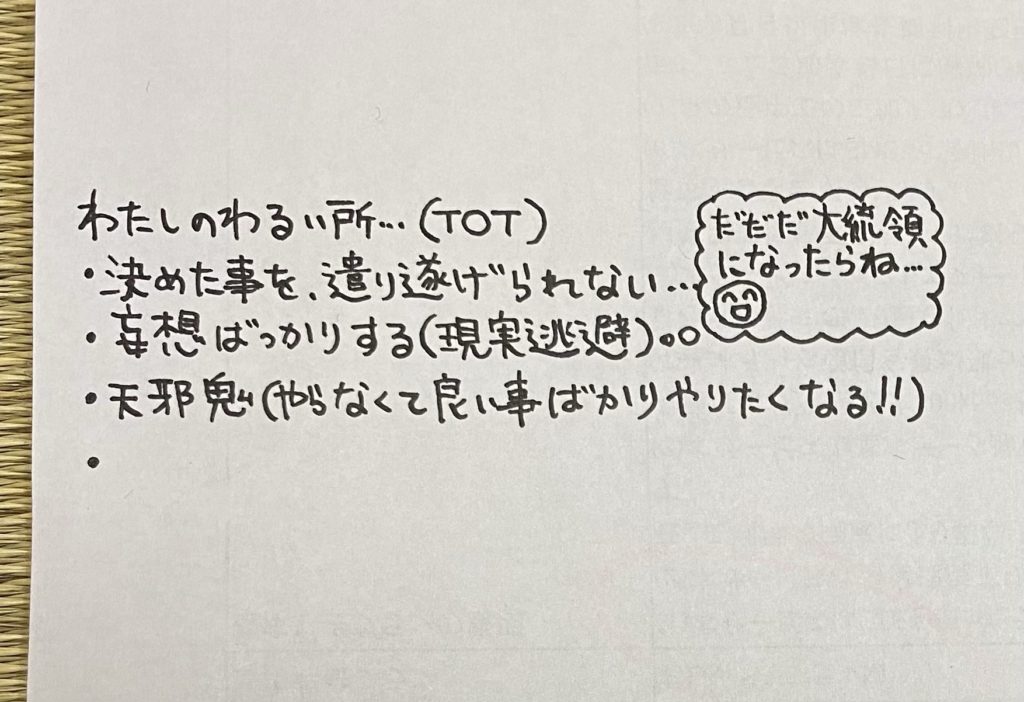 わたしのわるい所…(TOT)
・決めた事を、遣り遂げられない…
・妄想ばっかりする(現実逃避)
・天邪鬼(やらなくて良い事ばかりやりたくなる!!)
・
だだだ大統領
になったらね…